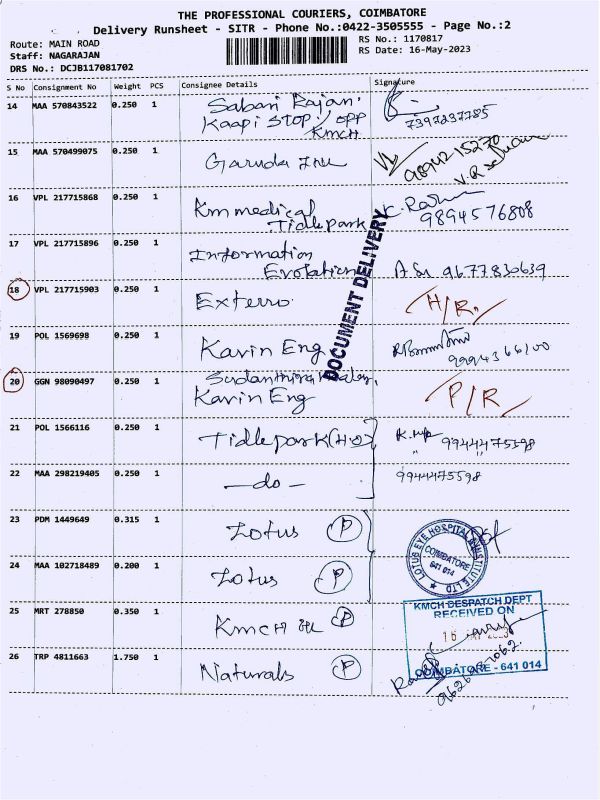 THE PROFESSIONAL COURIERS, COIMBATORE
Delivery Runsheet - SITR - Phone No.:0422-3505555 - Page No.:2
Route: MAIN ROAD
RS No.: 1170817
Staff: NAGARAJAN
RS Date: 16-May-2023
DRS No.: DCJB117081702
S No Consignment No Weight PCS Consignee Details Signature
14 MAA 570843522 0.250 1 Sabari Rajan,
Kaapi Stop, opp
KMCH
7397237785
15 MAA 570499075 0.250 1 Garuda Inn
9894215270
16 VPL 217715868 0.250 1 Km medical
Tidlepark
9894576808
17 VPL 217715896 0.250 1 Information
Evolation 9677830639
DOCUMENT DELIVERY
18 VPL 217715903 0.250 1 Exterro H/R.
19 POL 1569698 0.250 1 Kavin Eng
9994366100
20 GGN 98090497 0.250 1
Kavin Eng P/R
21 POL 1566116 0.250 1 Tidlepark (H.O) 9944475598
22 MAA 298219405 0.250 1 —do— 9944475598
23 PDM 1449649 0.315 1 Lotus P
LOTUS EYE HOSPITAL & INSTITUTE LTD
COIMBATORE
641 014
24 MAA 102718489 0.200 1 Lotus P
25 MRT 278850 0.350 1 KMCH P
KMCH DESPATCH DEPT
RECEIVED ON
16
COIMBATORE - 641 014
26 TRP 4811663 1.750 1 Naturals P